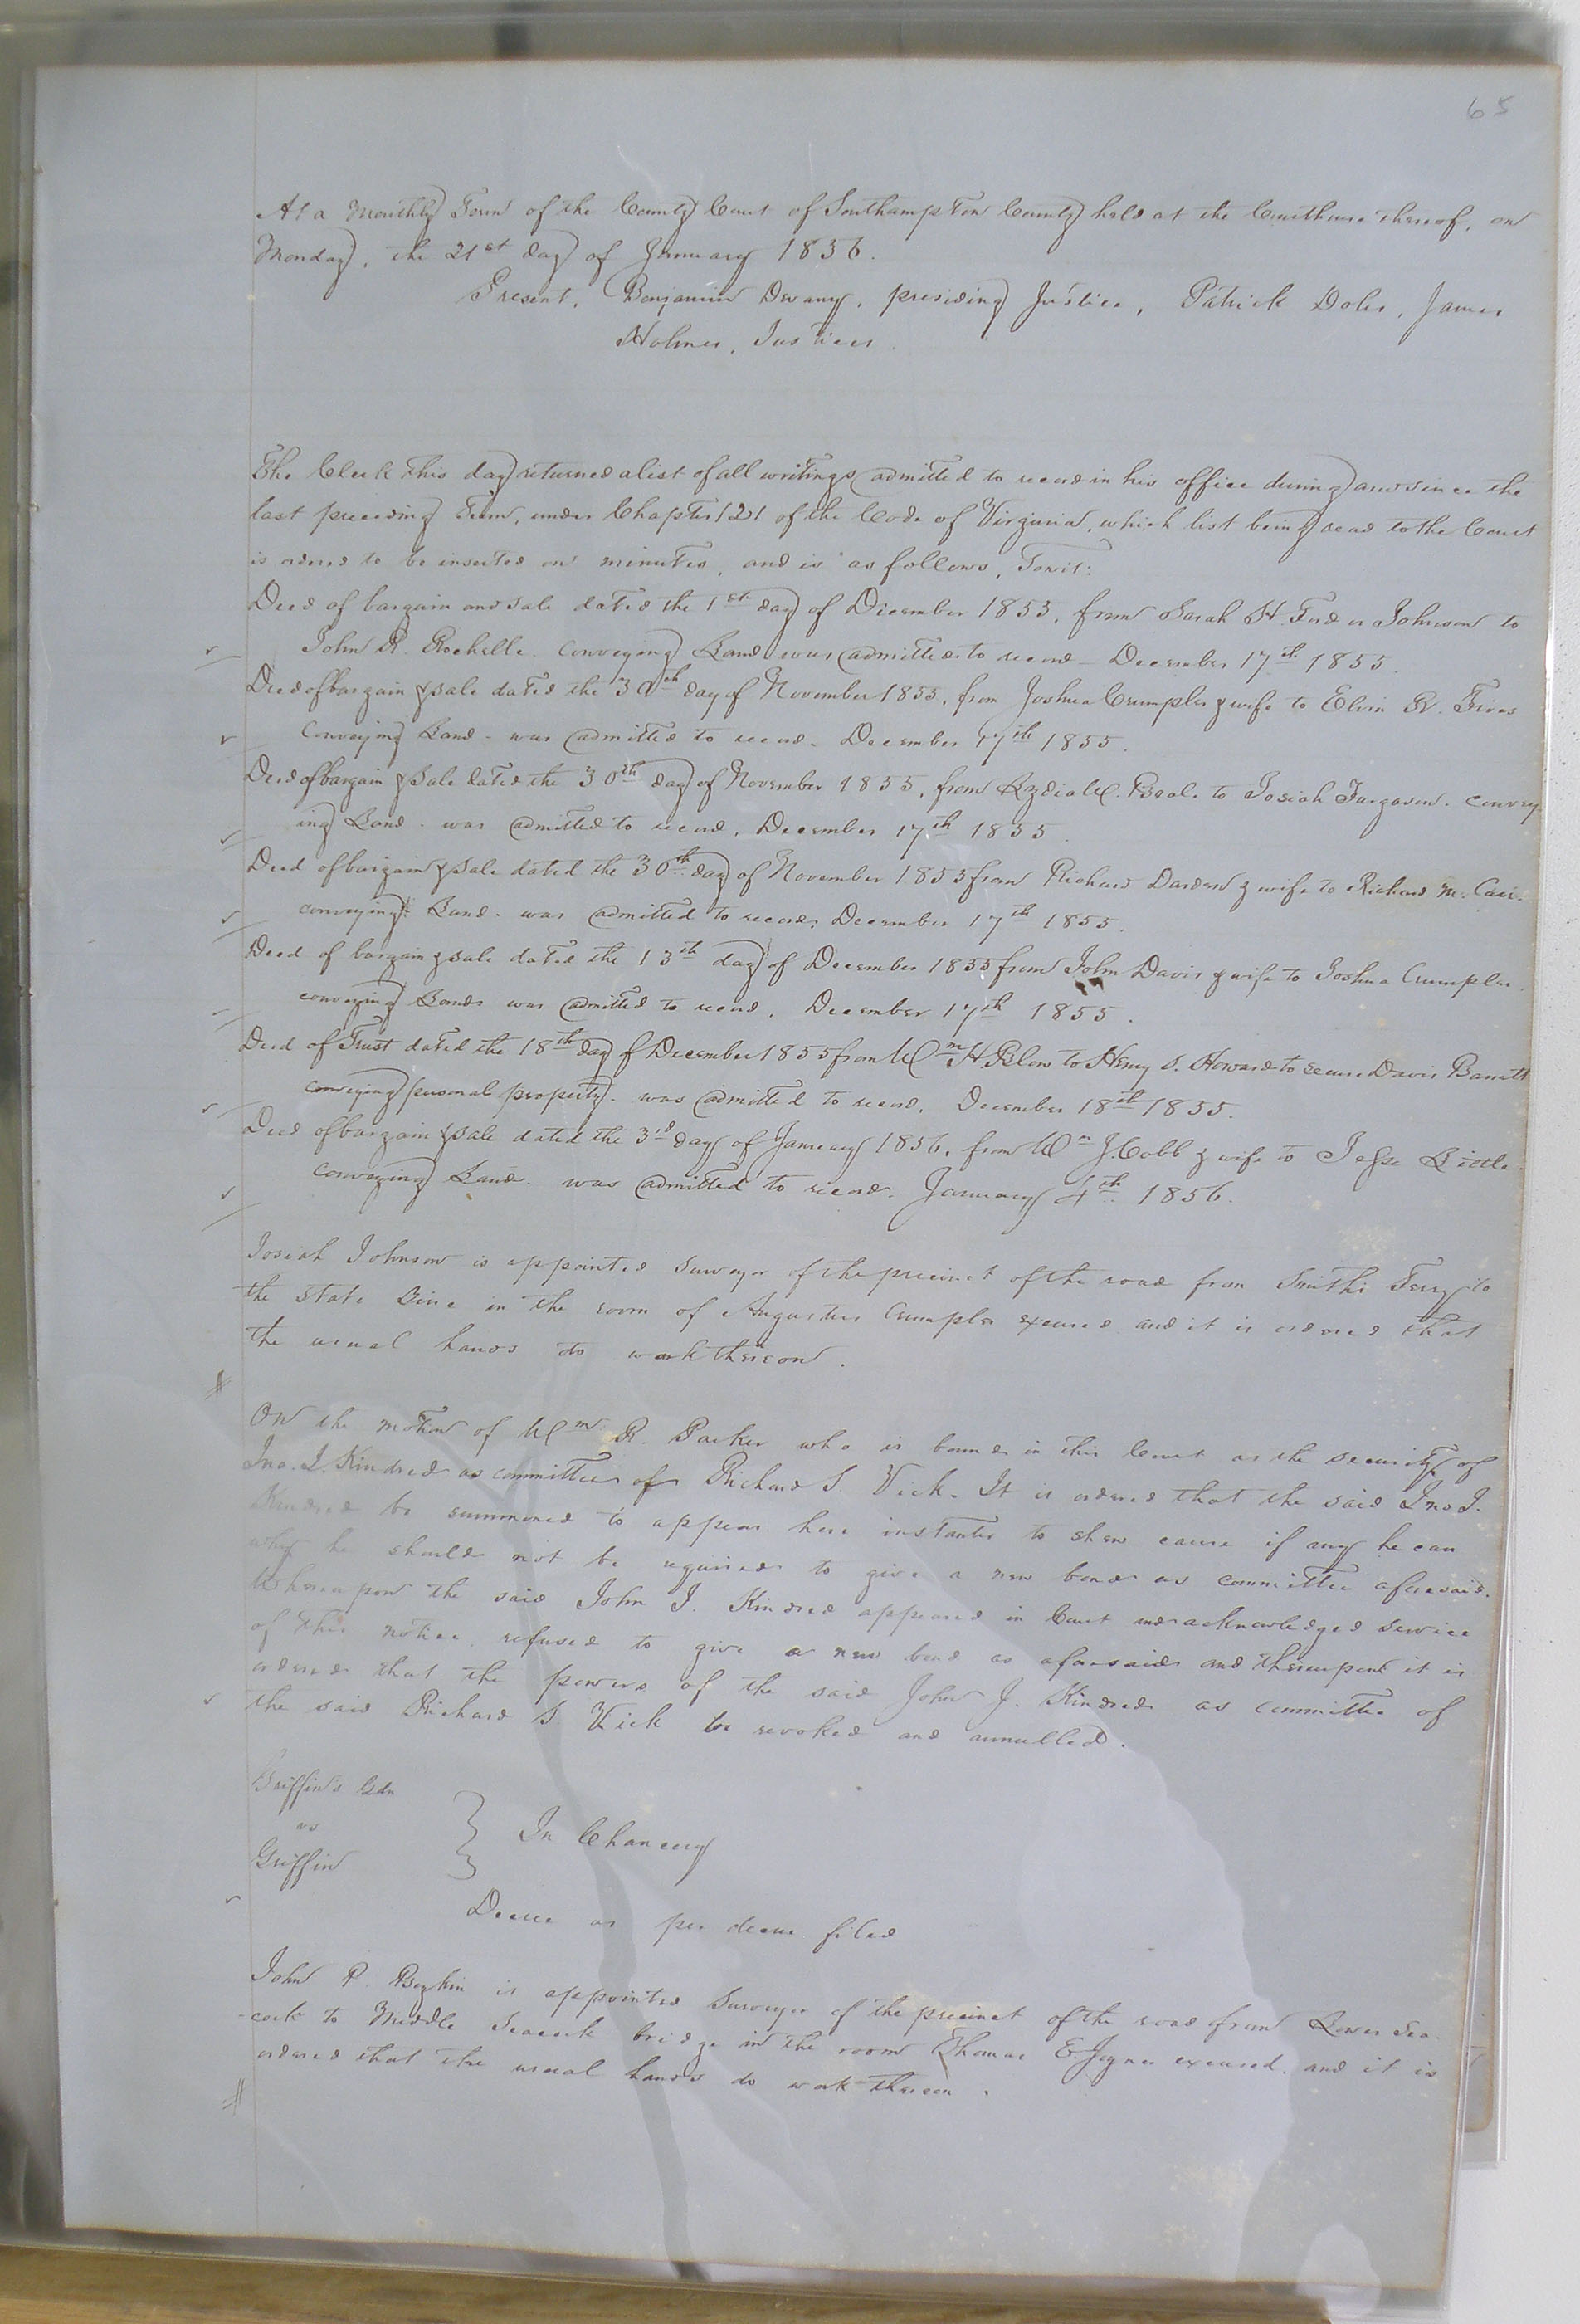 65
At a Monthly Term of the County Court of Southampton County held at the Courthouse thereof, on
Monday, the 21st day of January 1856.
Present, Benjamin Devany, presiding Justice, Patrick Doles, James
Holmes, Justices.
The Clerk this day returned a list of all writings admitted to record in his office during and since the
last preceding Term, under Chapter 121 of the Code of Virginia, which list being read to the Court
is ordered to be inserted on minutes, and is as follows, Towit:
Deed of bargain and sale dated the 1st day of December 1855, from Sarah H. Johnson to
John R. Rochelle. conveying Land was admitted to record - December 17th 1855.
Deed of bargain & sale dated the 30th day of November 1855, from Joshua Crumpler & wife to Elvin
conveying Land - was admitted to record. December 17th 1855.
Deed of bargain & sale dated the 30th day of November 1855, from Lydia C. Beale to Josiah Furgason. convey-
ing Land - was admitted to record, December 17th 1855.
Deed of bargain & sale dated the 30th day of November 1855 from Richard Darden & wife to Richard M.
conveying Land - was admitted to record; December 17th 1855.
Deed of bargain & sale dated the 13th day of December 1855 from John Davis & wife to Joshua Crumpler.
conveying Lands was admitted to record, December 17th 1855.
Deed of Trust dated the 18th day of December 1855 from Wm H. Blow to Henry S. Howard to secure Davis Barrett
conveying personal property. was admitted to record. December 18th 1855.
Deed of bargain & sale dated the 3rd day of January 1856, from Wm J. Cobb & wife to Jesse Little.
conveying Land. was admitted to record. January 4th 1856.
Josiah Johnson is appointed Surveyor of the precinct of the road from Smiths Ferry to
the State Line in the room of Augustus Crumpler excused and it is ordered that
the usual hands do work thereon.
On the motion of Wm R. Parker who is bound in this Court as the security of
Jno. J. Kindred as committee of Richard S. Vick. It is ordered that the said Jno J.
Kindred be summoned to appear here instanter to shew cause if any he can
why he should not be required to give a new bond as committee aforesaid.
Whereupon the said John J. Kindred appeared in Court and acknowledged service
of this notice, refused to give a new bond as aforesaid and thereupon it is
ordered that the powers of the said John J. Kindred as committee of
the said Richard S. Vick be revoked and annulled.
Griffin's Gdn
vs
Griffin
In Chancery
Decree as per decree filed
John P. Boykin is appointed Surveyor of the precinct of the road from Lower Sea-
-cock to Middle Seacock bridge in the room Thomas E. Joyner excused. and it is
ordered that the usual hands do work thereon.